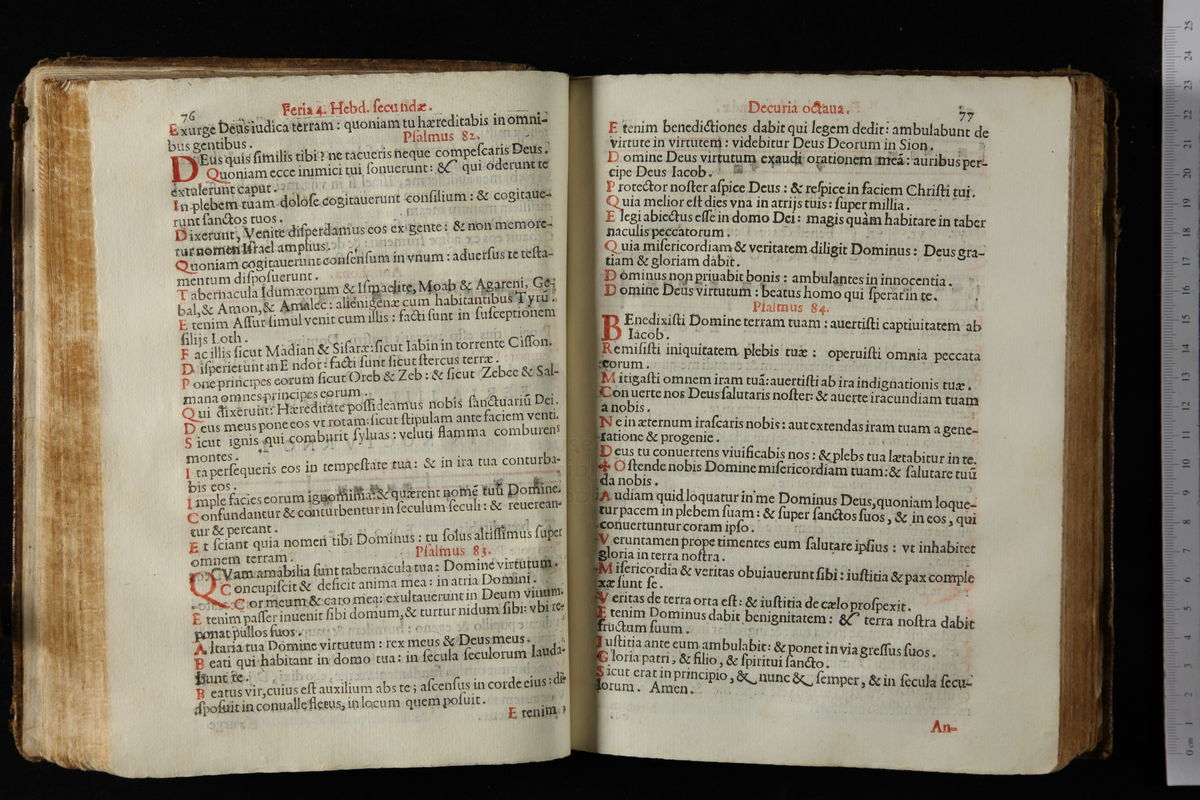 76 Feria 4. Hebd. ſecundæ.
Exurge Deus iudica terram : quoniam tu hæreditabis in omni-
bus gentibus.
Pſalmus 82.
DEus quis ſimilis tibi? ne tacueris neque compeſcaris Deus.
Quoniam ecce inimici tui ſonuerunt : & qui oderunt te
extalerunt caput.
In plebem tuam doloſe cogitauerunt conſilium : & cogitaue-
runt ſanctos tuos.
Dixerunt, Venite diſperdamus eos ex gente : & non memore-
tur nomen Iſrael amplius.
Quoniam cogitauerunt conſenſum in vnum : aduerſus te teſta-
mentum diſpoſuerunt.
Tabernacula Idumæorum & Iſmaelite, Moab & Agareni, Ge-
bal, & Amon, & Amalec : alienigenæ cum habitantibus Tyrū.
Etenim Aſſur ſimul venit cum illis : facti ſunt in ſuſceptionem
filijs Loth.
Fac illis ſicut Madian & Siſaræ: ſicut Iabin in torrente Ciſſon.
Diſperierunt in Endor : facti ſunt ſicut ſtercus terræ.
Pone principes eorum ſicut Oreb & Zeb : & ſicut Zebee & Sal-
mana omnes principes eorum.
Qui dixerunt: Hæreditate poſſideamus nobis ſanctuariū Dei.
Deus meus pone eos vt rotam: ſicut ſtipulam ante faciem venti.
Sicut ignis qui comburit ſyluas : veluti flamma comburens
montes.
Ita perſequeris eos in tempeſtate tua : & in ira tua conturba-
bis eos.
Imple facies eorum ignominia: & quærent nomē tuū Domine.
Confundantur & conturbentur in ſeculum ſeculi : & reuerean-
tur & pereant.
Et ſciant quia nomen tibi Dominus : tu ſolus altiſſimus ſuper
omnem terram.
Pſalmus 83.
QVam amabilia ſunt tabernacula tua : Domine virtutum.
Concupiſcit & deficit anima mea : in atria Domini.
Cor meum & caro mea : exultauerunt in Deum viuum.
Etenim paſſer inuenit ſibi domum, & turtur nidum ſibi: vbi re-
ponat pullos ſuos.
Altaria tua Domine virtutum : rex meus & Deus meus.
Beati qui habitant in domo tua : in ſecula ſeculorum lauda-
bunt te.
Beatus vir, cuius eſt auxilium abs te ; aſcenſus in corde eius : di-
ſpoſuit in conualle fletus, in locum quem poſuit.
Etenim
Decuria octaua. 77
Etenim benedictiones dabit qui legem dedit : ambulabunt de
virtute in virtutem : videbitur Deus Deorum in Sion.
Domine Deus virtutum exaudi orationem meā : auribus per-
cipe Deus Iacob.
Protector noſter aſpice Deus : & reſpice in faciem Chriſti tui.
Quia melior eſt dies vna in atrijs tuis : ſuper millia.
Elegi abiectus eſſe in domo Dei : magis quàm habitare in taber
naculis peccatorum.
Quia miſericordiam & veritatem diligit Dominus : Deus gra-
tiam & gloriam dabit.
Dominus non priuabit bonis : ambulantes in innocentia.
Domine Deus virtutum : beatus homo qui ſperat in te.
Pſalmus 84.
BEnedixiſti Domine terram tuam : auertiſti captiuitatem ab
Iacob.
Remiſiſti iniquitatem plebis tuæ : operuiſti omnia peccata
eorum.
Mitigaſti omnem iram tuā: auertiſti ab ira indignationis tuæ.
Conuerte nos Deus ſalutaris noſter: & auerte iracundiam tuam
a nobis.
Ne in æternum iraſcaris nobis : aut extendas iram tuam a gene-
ratione & progenie.
Deus tu conuertens viuificabis nos : & plebs tua lætabitur in te.
✠ Oſtende nobis Domine miſericordiam tuam: & ſalutare tuū
da nobis.
Audiam quid loquatur in me Dominus Deus, quoniam loque-
tur pacem in plebem ſuam : & ſuper ſanctos ſuos, & in eos, qui
conuertuntur coram ipſo.
Veruntamen prope timentes eum ſalutare ipſius : vt inhabitet
gloria in terra noſtra.
Miſericordia & veritas obuiauerunt ſibi : iuſtitia & pax comple
xæ ſunt ſe.
Veritas de terra orta eſt : & iuſtitia de cælo proſpexit.
Etenim Dominus dabit benignitatem : & terra noſtra dabit
fructum ſuum.
Iuſtitia ante eum ambulabit : & ponet in via greſſus ſuos.
Gloria patri, & filio, & ſpiritui ſancto.
Sicut erat in principio, & nunc & ſemper, & in ſecula ſecu-
lorum. Amen.
An-